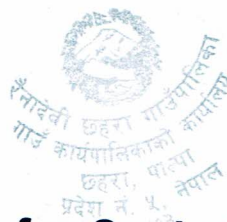 रैनादेवी छहरा गाउँपालिका
गाउँ कार्यपालिकाको कार्यालय
छहरा, पाल्पा
प्रदेश नं. ५, नेपाल